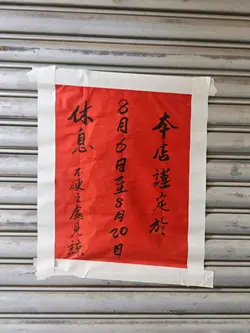 本店謹定於
8月5日至8月20日
休息 不便之處見諒